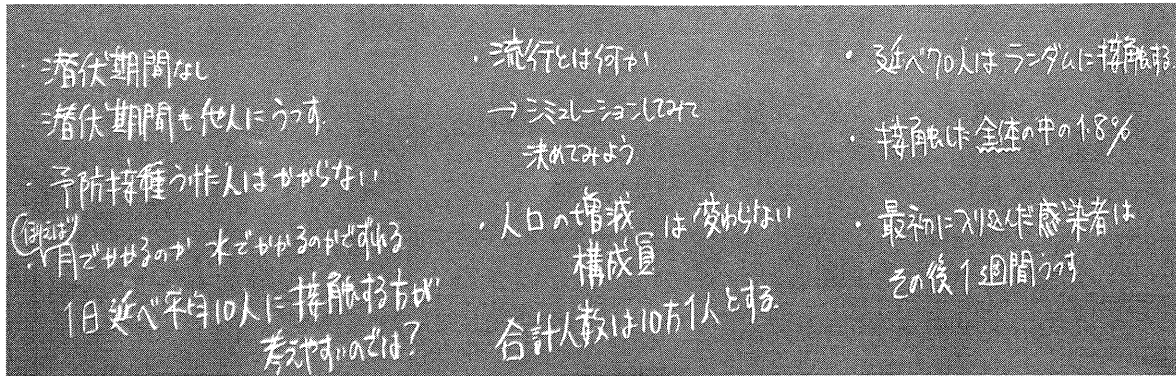 ・潜伏期間なし
潜伏期間も他人にうつす.
・予防接種うけた人はかからない
(例えば)
・月でかかるのか 水でかかるのかでずれる
1日延べ平均10人に接触する方が
考えやすいのでは?
・流行とは何か
→シミュレーションしてみて
決めてみよう
・人口の増減
構成員 は変わらない
合計人数は10万1人とする.
・延べ70人はランダムに接触する.
・接触した全体の中の1.8%
・最初に入り込んだ感染者は
その後1週間うつす